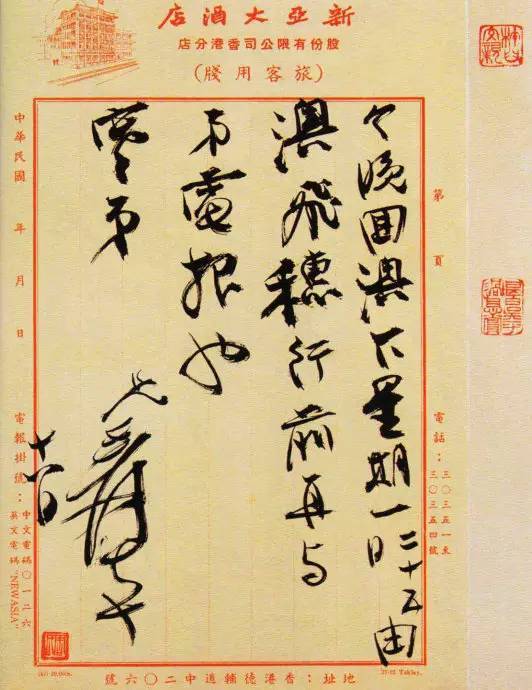 新亞大酒店
股份有限公司香港分店
(旅客用牋)
第 頁
電話：三〇三五一至三〇三五四號
今晚回澳下星期一二十五日由
澳飛穗行前再与
弟電報也
弟
兄爰大千
十八日
中華民國 年 月 日
電報掛號：中文電碼〇一二六
英文電碼"NEWASIA"
地址：香港德輔道中二〇六號